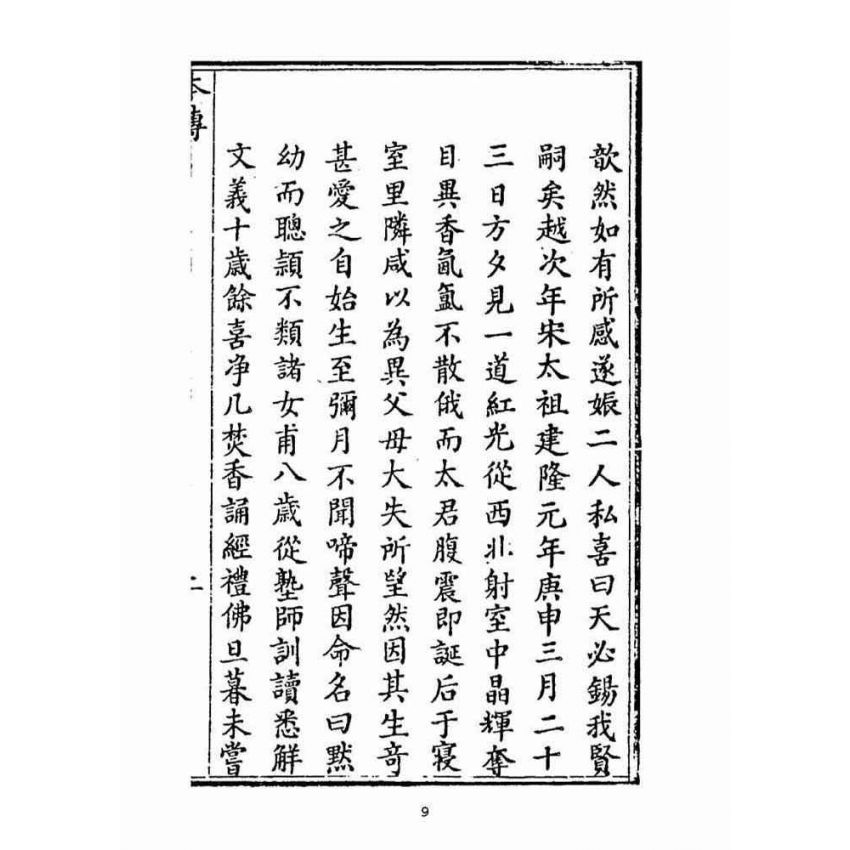 歆然如有所感遂娠二人私喜曰天必錫我賢
嗣矣越次年宋太祖建隆元年庚申三月二十
三日方夕見一道紅光從西北射室中晶輝奪
目異香氤氳不散俄而太君腹震即誕后于寢
室里隣咸以為異父母大失所望然因其生奇
甚愛之自始生至彌月不聞啼聲因命名曰默
幼而聰頴不類諸女甫八歲從塾師訓讀悉解
文義十歲餘喜净几焚香誦經禮佛旦暮未嘗
本傳
二
9